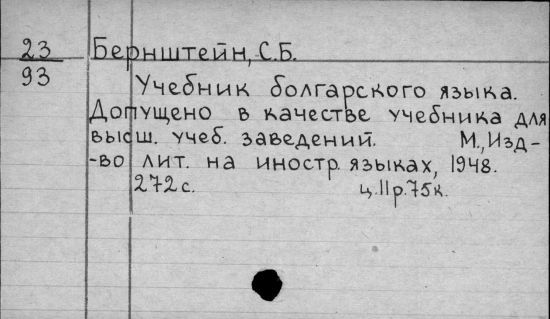 23 Бернштейн, С.Б.
93
Учебник болгарского языка.
Допущено в качестве учебника для
высш. учеб. заведений. М., Изд-
-во лит. на иностр. языках, 1948.
272 с. ц. 11 р. 75 к.